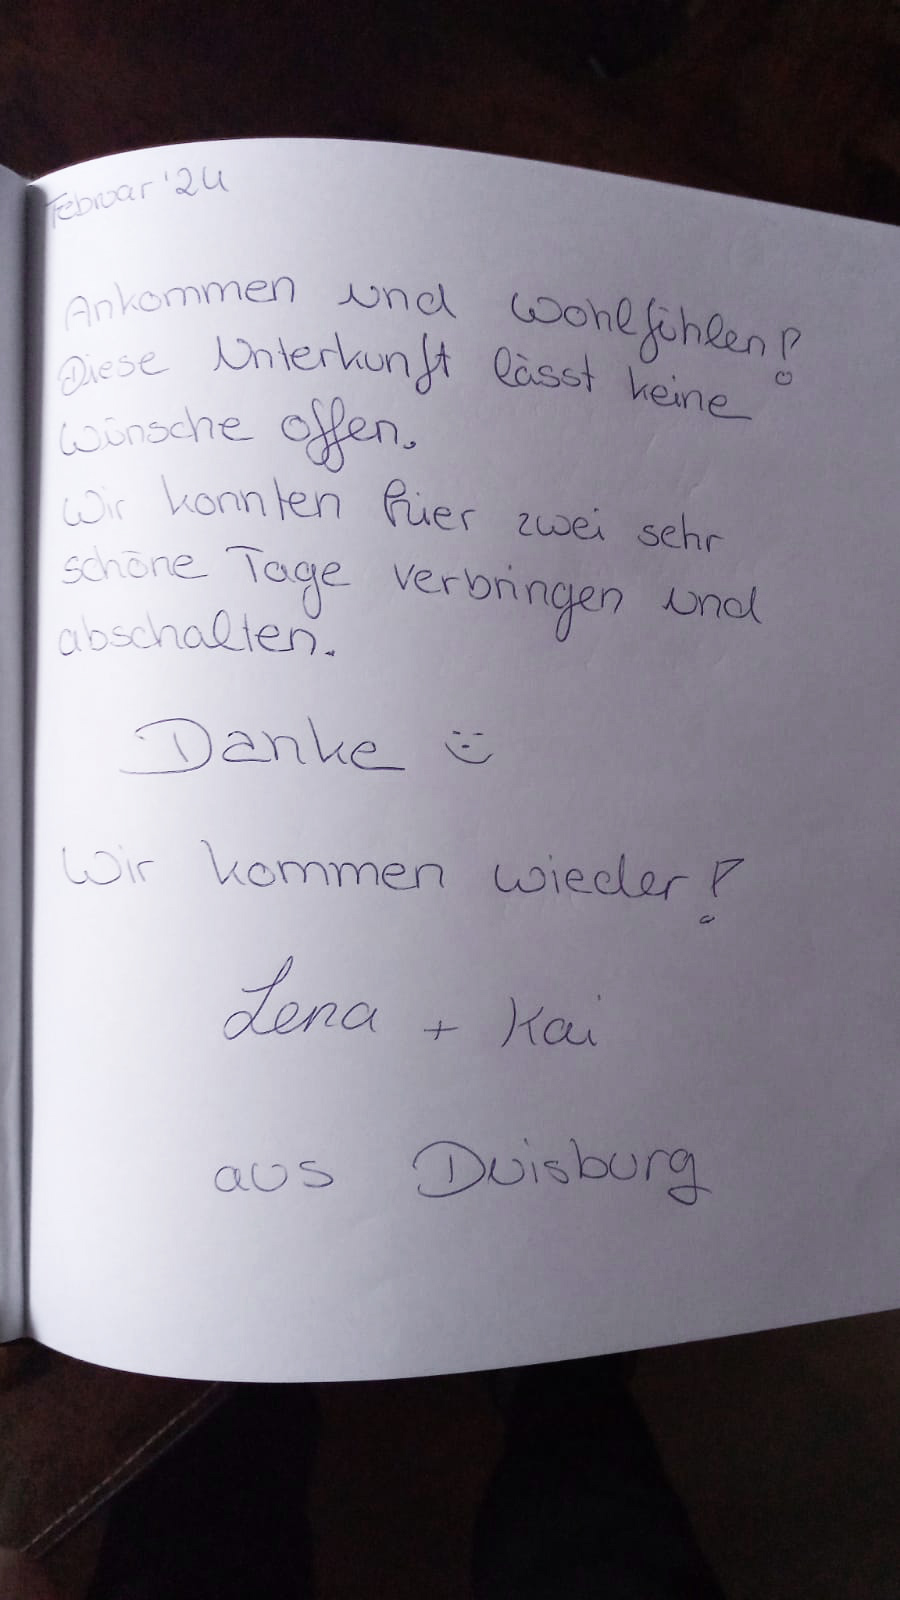 Februar '24
Ankommen und Wohlfühlen!
Diese Unterkunft lässt keine
Wünsche offen.
Wir konnten hier zwei sehr
schöne Tage verbringen und
abschalten.
Danke :-)
Wir kommen wieder!
Lena + Kai
aus Duisburg